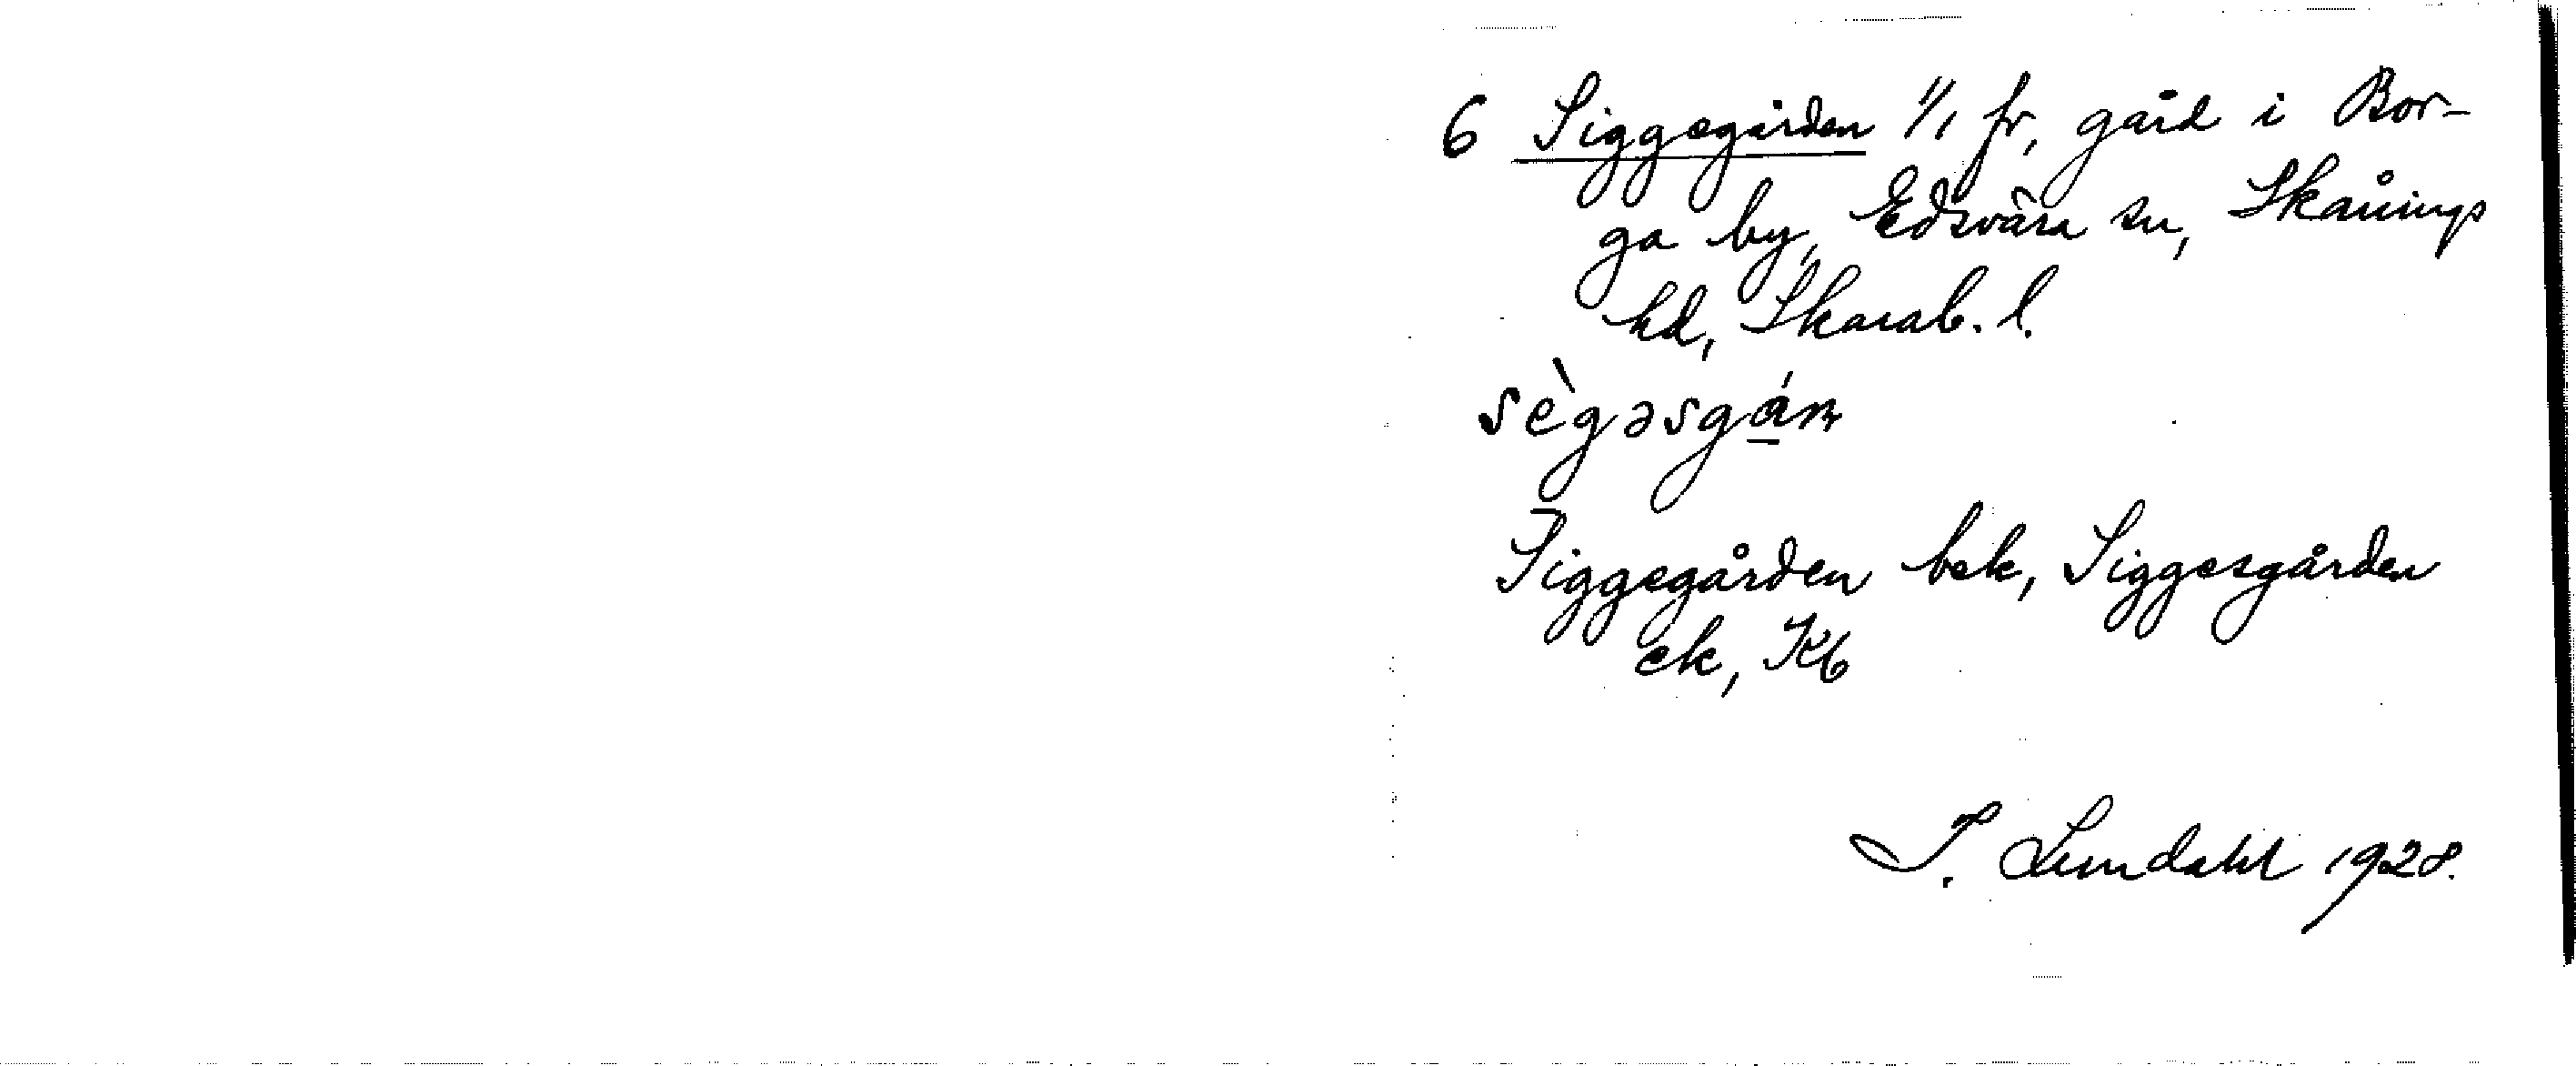 6 Siggegården 1/1 fr, gård i Bor-
ga by, Edsvära sn, Skånings
hd, Skarab. l.
sègəsgán
Siggegården bek, Siggesgården
ek, Kb
I. Lundahl 1928.